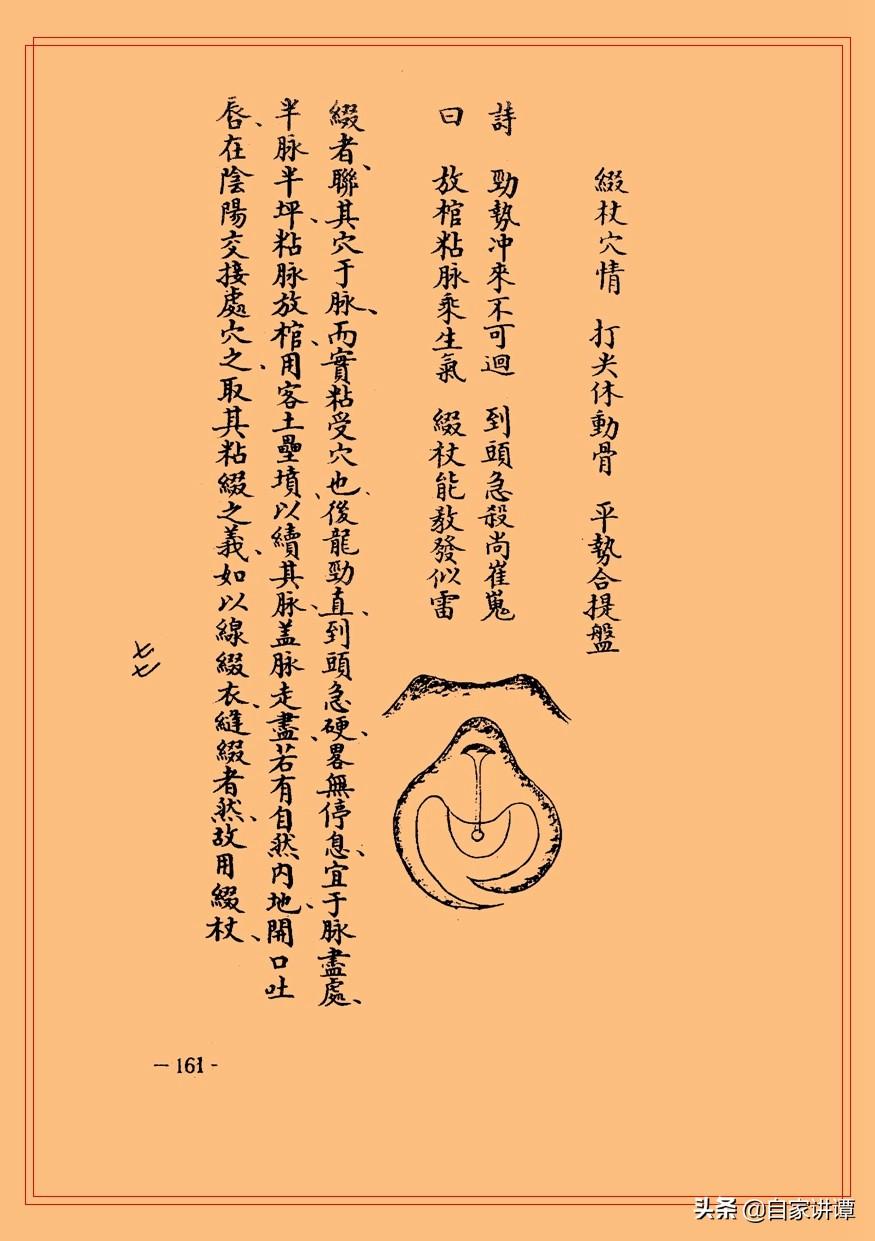 綴杖穴情　打尖休動骨　平勢合提盤
詩　勁勢冲來不可迴　到頭急殺尚崔嵬
曰　放棺粘脉乘生氣　綴杖能教發似雷
綴者、聯其穴于脉、而實粘受穴也、後龍勁直、到頭急硬、畧無停息、宜于脉盡處、
半脉半坪、粘脉放棺、用客土壘墳、以續其脉、盖脉走盡、若有自然內地、開口吐
唇、在陰陽交接處穴之、取其粘綴之義、如以線綴衣、縫綴者然、故用綴杖、
七七
-161-
头条 @自家讲谭